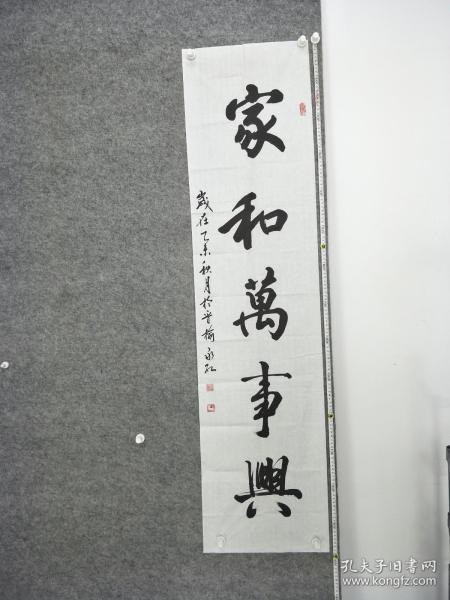 家和萬事興
歲在乙未秋月於晋榆永红
孔夫子旧书网
www.kongfz.com